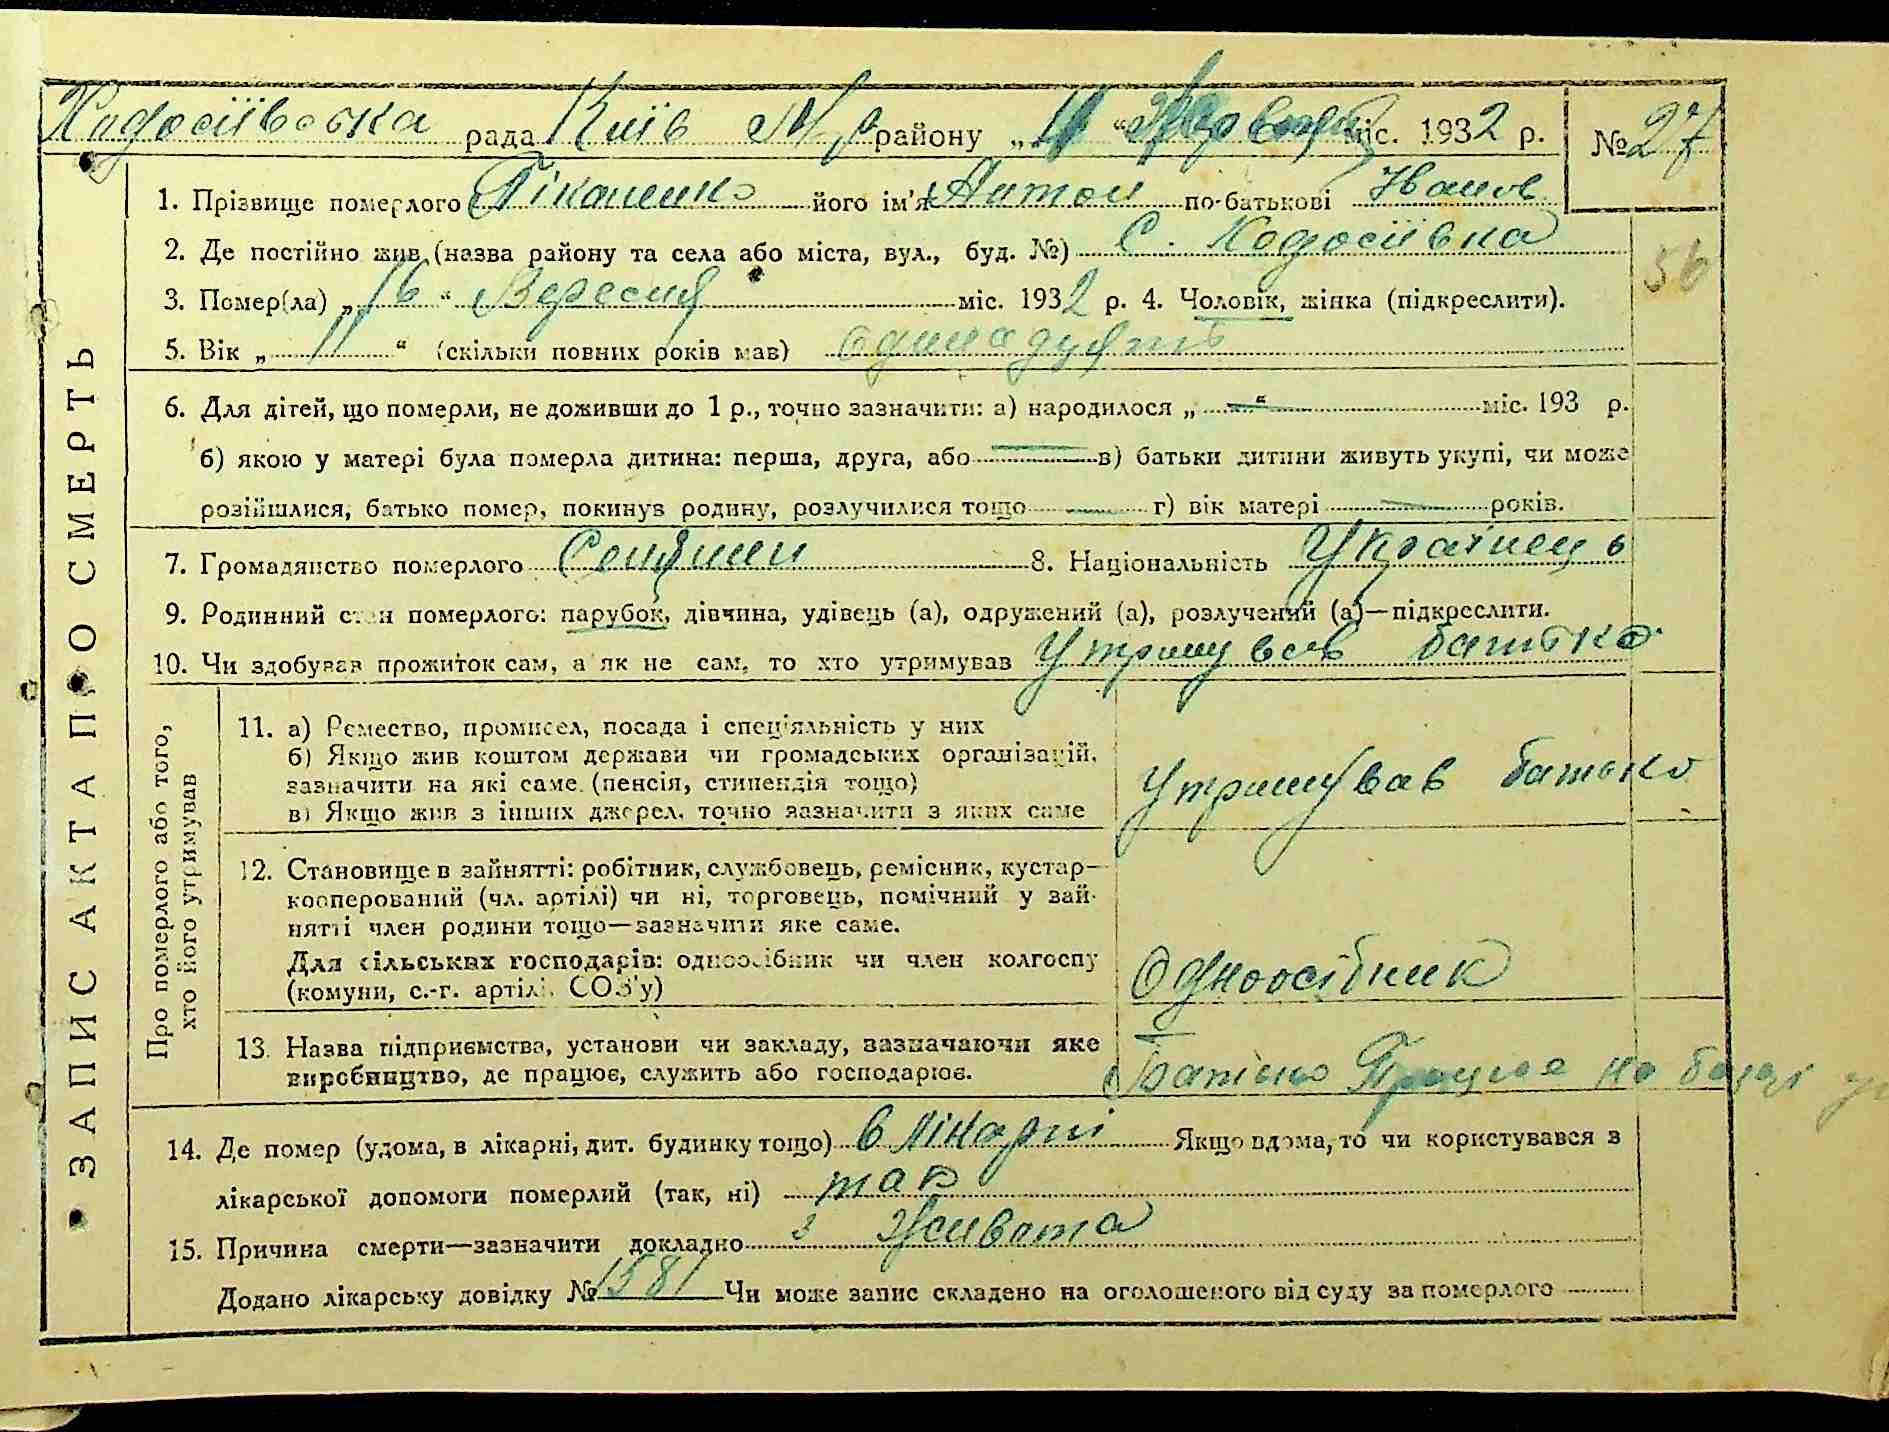 Ходосіївська рада Київ М/р району „ “ міс. 1932 р. № 27
1. Прізвище померлого Піканенко його ім'я Антон по-батькові Іванов
2. Де постійно жив (назва району та села або міста, вул., буд. №) С. Ходосіївка
56
3. Помер(ла) „16“ Вересня міс. 1932 р. 4. Чоловік, жінка (підкреслити).
5. Вік „11“ (скільки повних років мав) одинадцять
6. Для дітей, що померли, не доживши до 1 р., точно зазначити: а) народилося „—“ міс. 193 р.
б) якою у матері була померла дитина: перша, друга, або — в) батьки дитини живуть укупі, чи може
розійшлися, батько помер, покинув родину, розлучилися тощо — г) вік матері — років.
7. Громадянство померлого Селянин 8. Національність Українець
9. Родинний стан померлого: парубок, дівчина, удівець (а), одружений (а), розлучений (а)—підкреслити.
10. Чи здобував прожиток сам, а як не сам, то хто утримував Утримував батько
ЗАПИС АКТА ПРО СМЕРТЬ
Про померлого або того,
хто його утримував
11. а) Ремество, промисел, посада і спеціяльність у них
б) Якщо жив коштом держави чи громадських організацій,
зазначити на які саме (пенсія, стипендія тощо)
в) Якщо жив з інших джерел, точно зазначити з яких саме
Утримував батько
12. Становище в зайнятті: робітник, службовець, ремісник, кустар—
кооперований (чл. артілі) чи ні, торговець, помічний у зай-
нятті член родини тощо—зазначити яке саме.
Для сільських господарів: одноосібник чи член колгоспу
(комуни, с.-г. артілі, СОЗ'у)
Одноосібник
13. Назва підприємства, установи чи закладу, зазначаючи яке
виробництво, де працює, служить або господарює.
Батько Працює на
14. Де помер (удома, в лікарні, дит. будинку тощо) в лікарні Якщо вдома, то чи користувався з
лікарської допомоги померлий (так, ні) так
15. Причина смерти—зазначити докладно з живота
Додано лікарську довідку № 1581 Чи може запис складено на оголошеного від суду за померлого